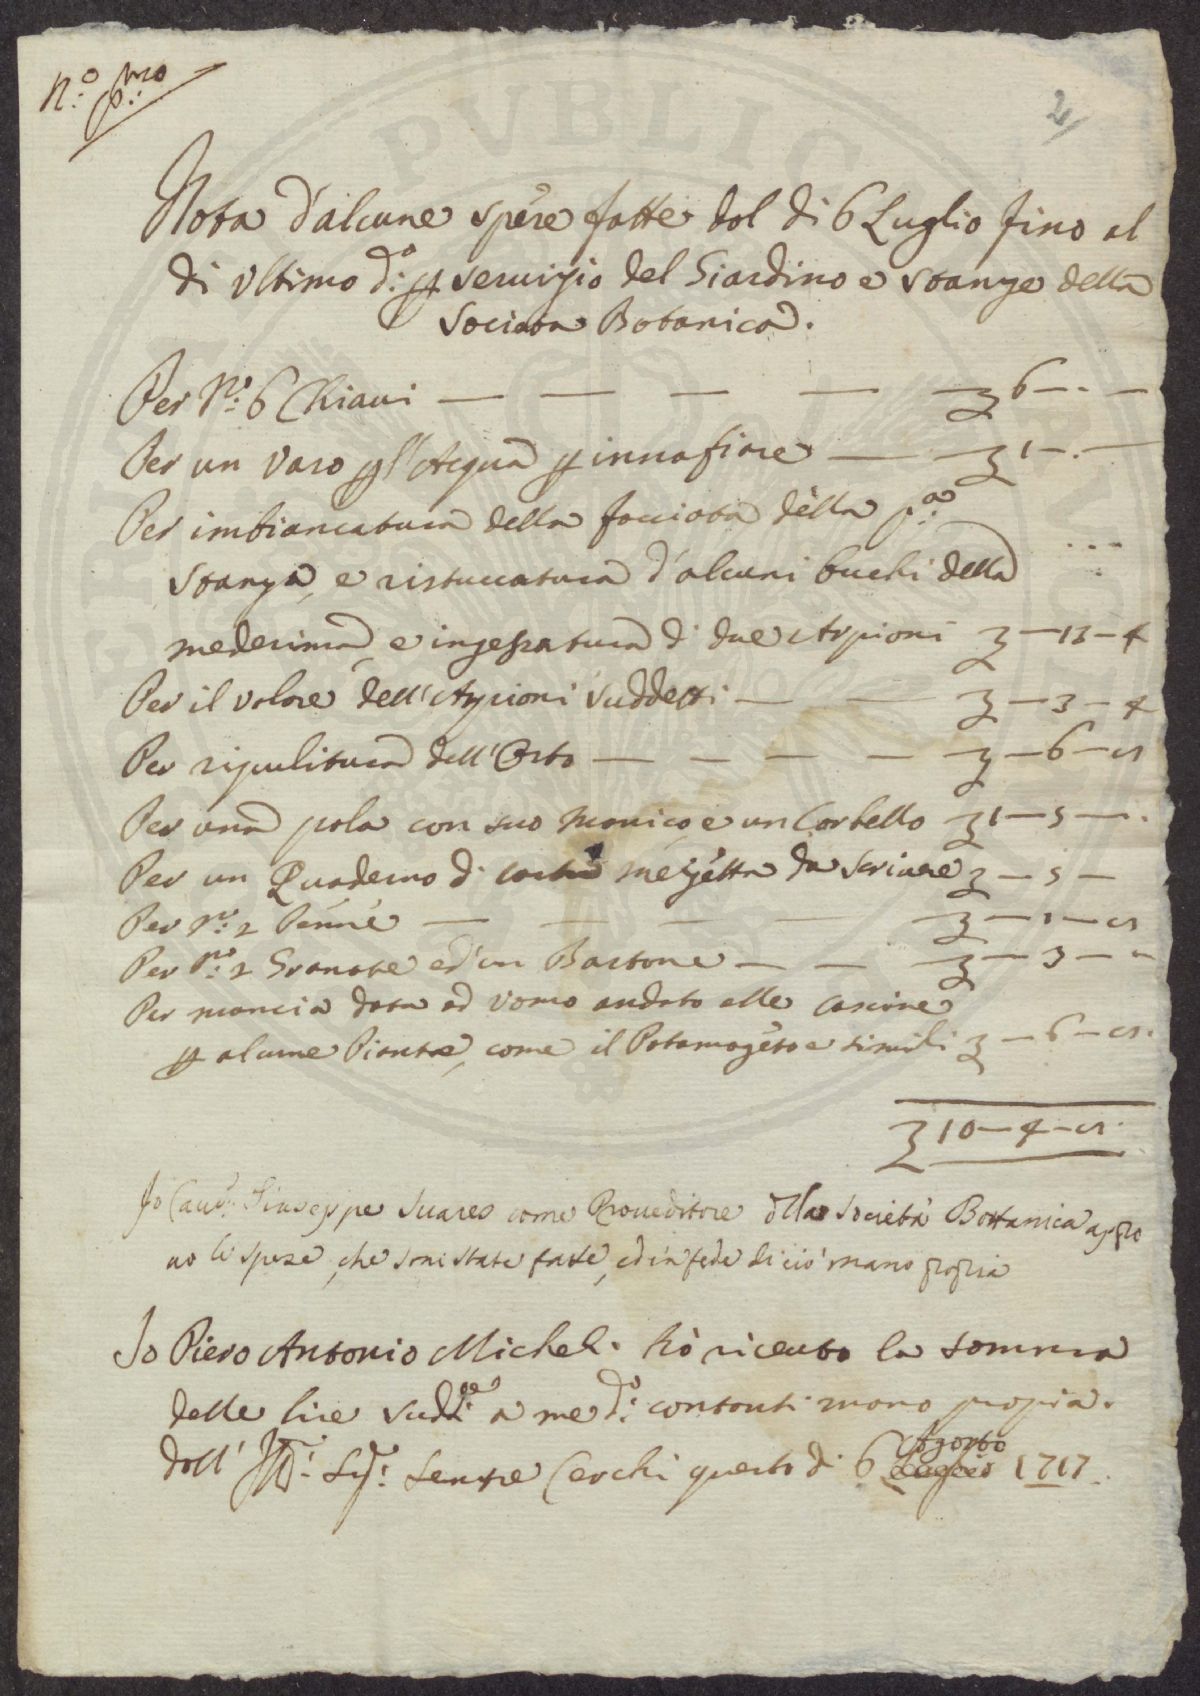 PVBLIC
N.º p.mo
2
Nota d'alcune spese fatte dal di 6 Luglio fino al
di ultimo d.º p servizio del Giardino e stanze della
Societa Botanica.
Per N.º 6 Chiavi — — — — £ 6 — . —
Per un vaso p l'Acqua p innafiare — £ 1 — . —
Per imbiancatura della facciata della p.a
stanza, e ristuccatura d'alcuni buchi della
medesima, e ingessatura di due Arpioni £ — 13 — 4
Per il valore dell'Arpioni suddetti — — £ — 3 — 4
Per ripulitura dell'Orto — — — — £ — 6 — 8
Per una pala con suo manico, e un Corbello £ 1 — 5 — .
Per un Quaderno di carta mezzetta da scrivere £ — 5 —
Per N.º 2 Penne — — — — £ — 1 — 8
Per N.º 2 Granate ed un Bastone — — £ — 3 — "
Per mancia data ad uomo andato alle Cascine
p alcune Piante, come il Potamogeto e simili £ — 6 — 8.
£ 10 — 4 — 8.
Io Cav.r Giuseppe Suares come Proveditore della Società Bottanica appro
vo le spese, che sono state fatte, ed in fede di ciò mano propria
Io Piero Antonio Micheli hò ricevuto la somma
delle lire sudd.e a me d.º contanti mano propia.
dall' Ill.º Sig.r Senre Cerchi questo di 6 Luglio Agosto 1717.